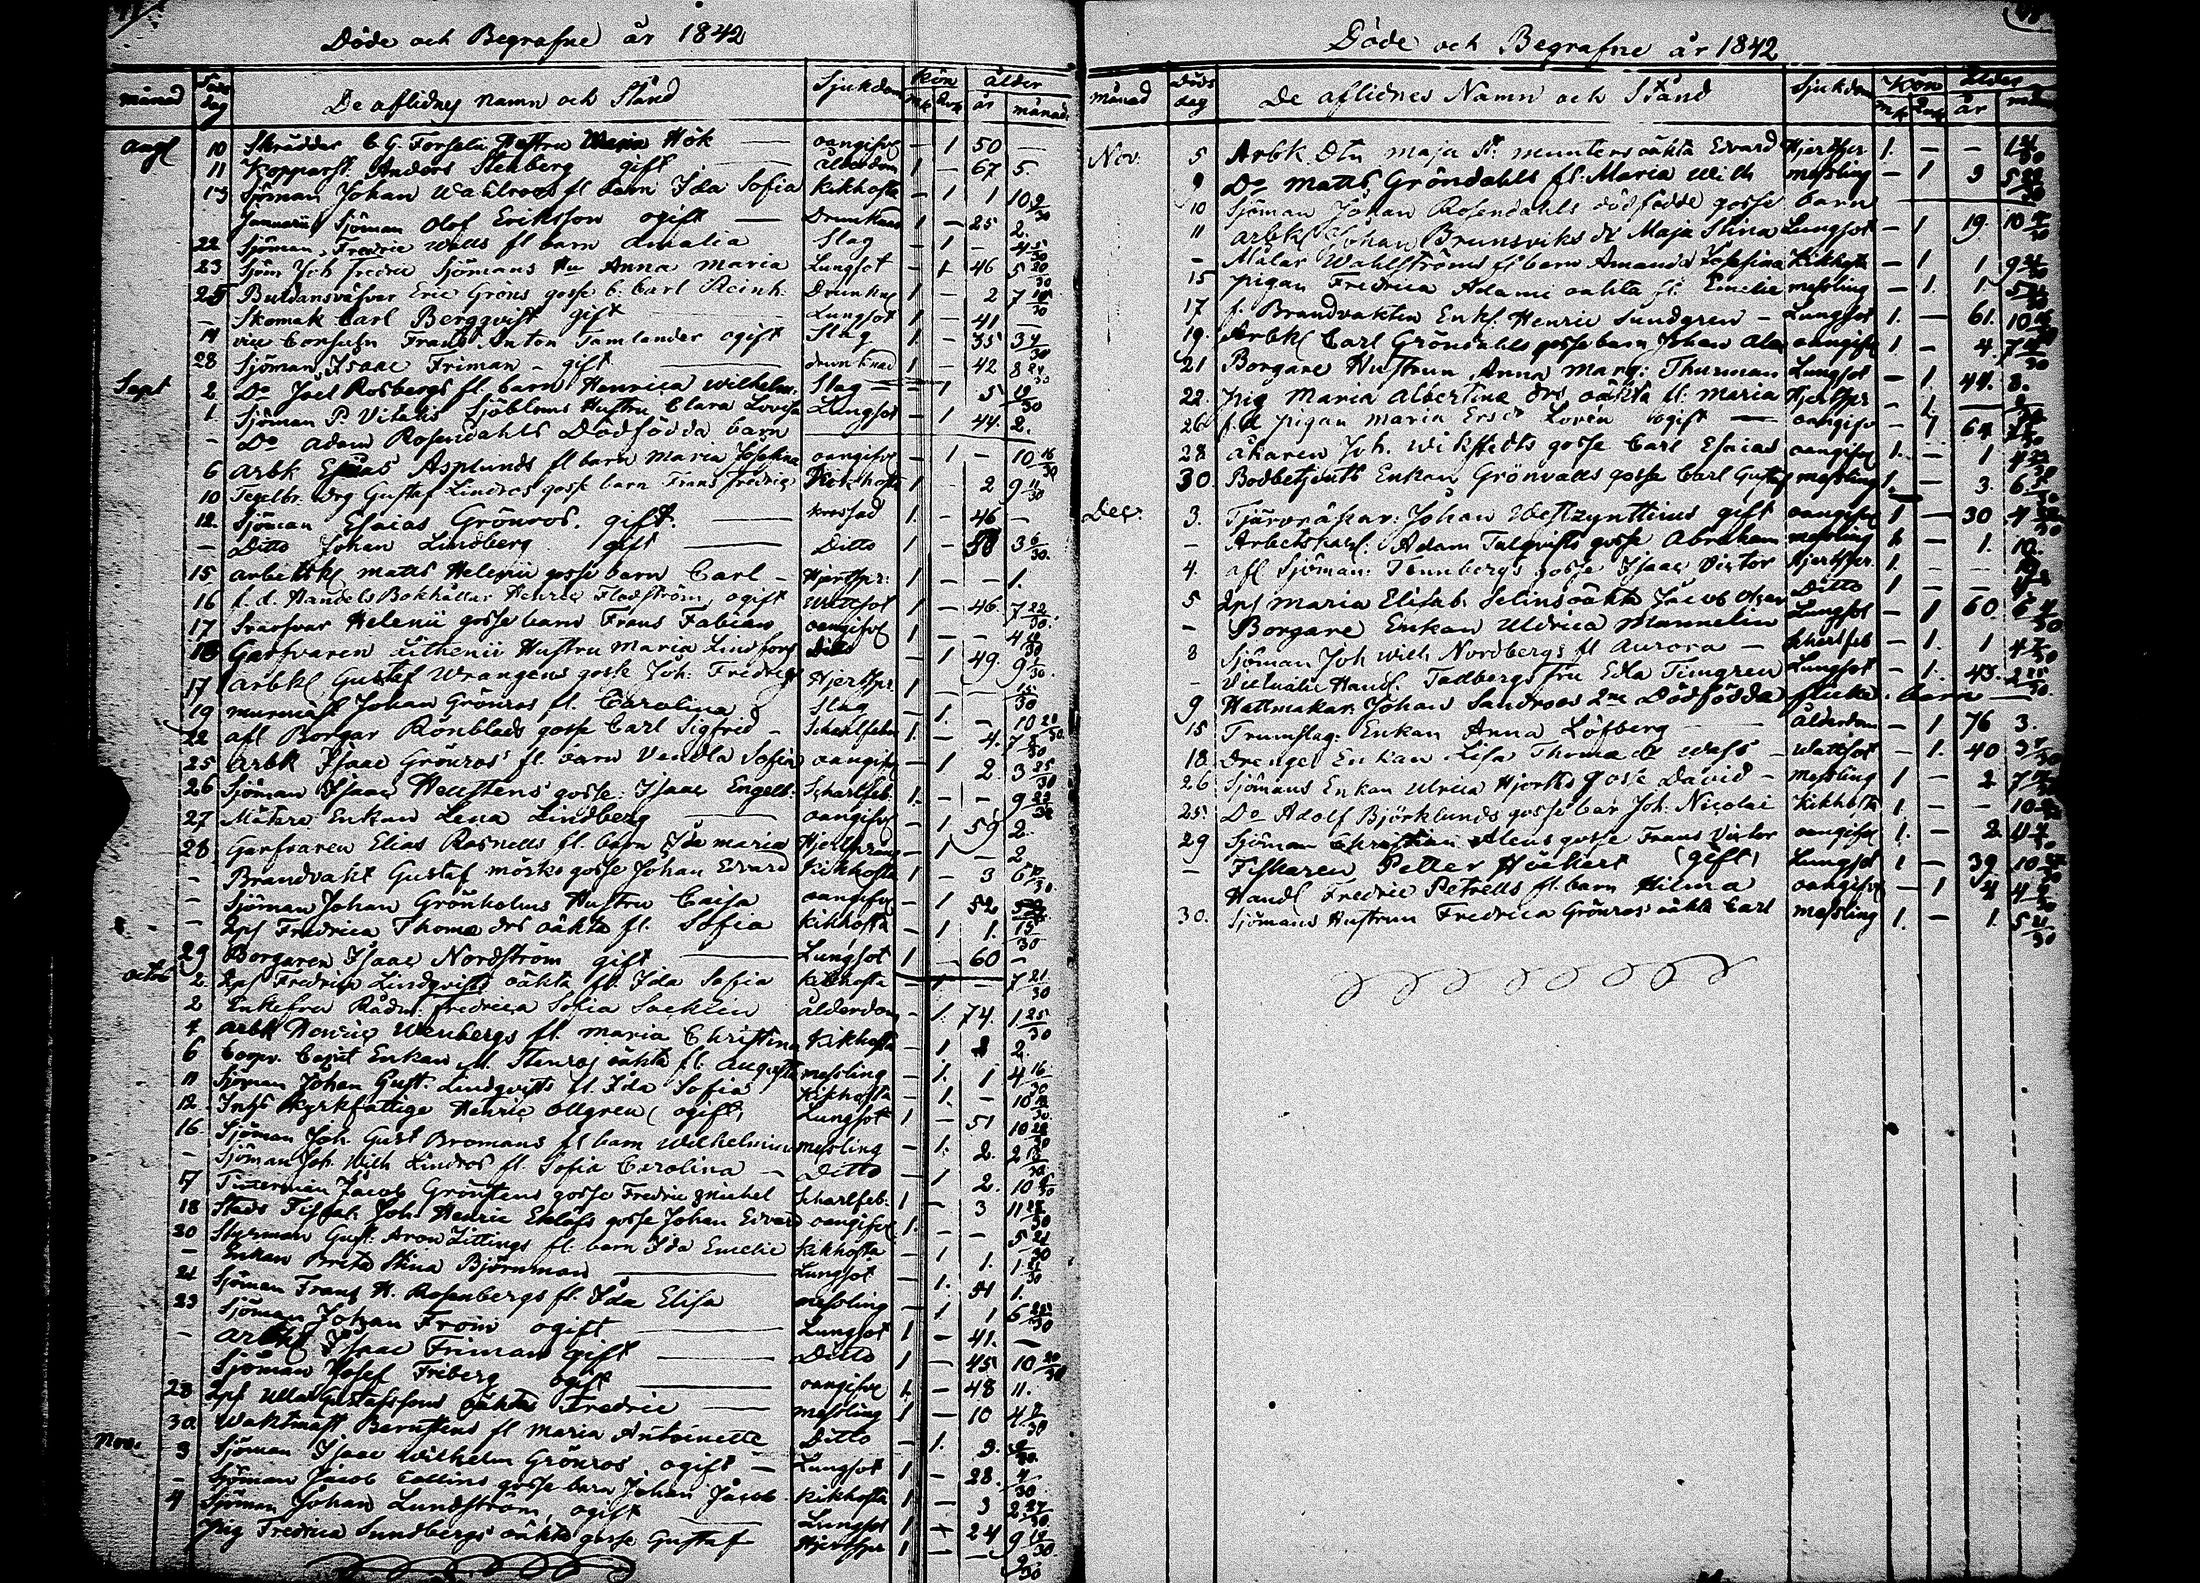 Döde och Begrafne år 1842
månad Döds dag De aflidnes namn och Stånd Sjukdom Kön ålder
mk qvk år månad
Augs 10 Skräddar C. G. Forselii Hustru Maria Hök oangifvf - 1 50 -
11 Kopparsl. Anders Stenberg gift ålderdom 1 - 67 5.
13 Sjöman Johan Wahlroos fl barn Ida Sofia Kikhosta - 1 1 10 9/30
Januarii Sjöman Olof Eriksson ogift Drunknad 1 - 25 2.
22 Sjöman Fredric Wills fl barn Amalia Slag - 1 - 4 5/30
23 Sjöm Joh fredric Sjömans Hu Anna Maria Lungsot - 1 46 5 20/30
25 Buldansväfvar Eric Gröns gosse b. Carl Reinh. Drunkn 1 - 2 7
- Skomak Carl Bergqvist gift Lungsot 1 - 41 -
vice Consuln Frans Anton Tamlander ogift Slag 1 - 35 3
28 Sjöman Isaac Friman - gift drunknad 1 - 42 8 24/30
Sept 2 Do Joel Rosbergs fl. barn Henrica Wilhelm. Slag - 1 5
1. Sjöman P. Vitalis Sjöbloms Hustru Clara Lovisa Lungsot - 1 44. 2.
- Do Adam Rosendahls Dödfödda barn
6 Arbk Esaias Asplunds fl barn Maria Josefina oangifvf - 1 - 10 16/30
10 Tegelbr. drg Gustaf Lindros gosse barn Frans fredric Kikhosta 1 - 2 9
12. Sjöman Esaias Grönros. gift. krossad 1. - 46 -
- Ditto Johan Lindberg gift Ditto 1 - 3 6/30
15 Arbetsk Matts Helenii gosse barn Carl - Hjertspr: 1 - - 1.
16 f. d. Handels Bokhållar Henric Flodström, ogift Wattsot 1 - 46. 7 22/30
17 Svarfvar Helenii gosse barn Frans Fabian oangifvf 1 - - 4
18 Garfvaren Lithenii Hustru Maria Lindfors Ditto - 1 49. 9
17 Arbk Gustaf Wrangens gosse Joh: Fredric Hjertspr. 1 - - 15/30
19 murmäst Johan Grönros fl. Carolina Slag - 1. - 10 20/30
22 afl Borgar Rönblads gosse Carl Sigfrid - Scharlfeber 1. - 4. 7
25 Arbk Isaac Grönros' fl. barn Vendla Sofia oangifvf - 1 2. 3 25/30
26 Sjöman Isaac Hellstens gosse: Isaac Engelb: Scharlfeb. 1. - - 9 22/30
27 Mätare Enkan Lena Lindberg oangifvf - 1 59 2.
28 Garfvaren Elias Rosnells fl. barn Ida Maria Hjertspr - 1 - 2
- Brandvakt Gustaf mörks gosse Johan Edvard Kikhosta 1 - 3 6
- Sjöman Johan Grönholms Hustru Caisa oangifvf - 1 52
- Qps Fredrica Thomæ drs oäkta fl. Sofia Kikhosta - 1 1. 15/30
29 Borgaren Isaac Nordström gift Lungsot 1 - 60 -
Octob 2. Qps Fredrica Lindqvists oäkta fl. Ida Sofia Kikhosta - 1 - 7 21/30
2 Enkefru Rådm: fredrica Sofia Sacklén ålderdom - 1. 74. 1 25/30
4 Arbk Henric Wenbergs fl. Maria Christina Kikhosta - 1 2.
6 Corpr. Enkan M. Stenros oäkta fl. Augusta messling - 1. 1 4 16/30
11 Sjöman Johan Gust. Lindqvists fl. Ida Sofia Kikhosta - 1. - 10
12. Inhs kyrkfattige Henric Ollgren (ogift) Lungsot 1 - 51 10
16 Sjöman Joh. Gust Bromans fl barn Wilhelmina messling - 1. 2. 2
- Sjöman Joh. Wilh Lindros fl. Sofia Carolina - Ditto - 1 2. 10
17 Timmerman Jacob Grönstens gosse Fredric Michel Scharlfeb. 1 - 3 11
18 Stads Fiskal Joh. Henric Eklöfs gosse Johan Edvard oangifvf 1. - - 5 21/30
20 Styrman Gust. Aron Littings fl. barn Ida Emelie Kikhosta - 1 1. 1
- Enkan Brita Stina Björnman Lungsot - 1. 51 1.
21 Sjöman Frans H. Rosenbergs fl. Ida Elisa messling - 1 1 6
23 Sjöman Johan From ogift Lungsot 1 - 41. -
- Arbk Isaac Friman gift Ditto 1 - 45 10 20/30
Sjöman Josef Friberg ogift oangifvf 1. - 48 11.
28 Qps Ulla Gustafssons oäkta Fredric messling 1 - 10 4
30. Waktmäst Bernstens fl Maria Antoinette Ditto - 1. 3.
Nov. 3 Sjöman Isaac Wilhelm Grönros ogift - Lungsot 1. - 28.
- Sjöman Jacob Collins gosse barn Johan Jacob Kikhosta 1 - 3 2 27/30
4 Sjöman Johan Lundström ogift Lungsot 1 - 24 9
Pig Fredrica Sundbergs oäkta gosse Gustaf Hjertspr 1 - -
Döde och Begrafne år 1842
månad Döds dag De aflidnes Namn och Stånd Sjukdom Kön Ålder
mk qvk år mån
Nov. 5 Arbk Dtn Maja St: Munters oäkta Edvard Hjertspr 1. - - 1
9 Do Matts Gröndahls fl. Maria Wilh messling - 1 3 5
10 Sjöman Johan Rosendahls dödfödde gosse barn
11 Arbk Johan Brunsviks dr Maja Stina Lungsot - 1 19. 10
- Målar Wahlströms fl barn Amanda Josefina Kikhosta - 1 1 9
15 Pigan Fredrica Adami oäkta fl. Emelie messling - 1. 1 5
17 f. Brandvakten Enkl. Henric Sundgren - Lungsot 1. - 61. 10
19. Arbk Carl Gröndahls gosse barn Johan Alex oangifvf 1 - 4. 7
21 Borgare Hustrun Anna Marg: Thurman Lungsot - 1. 44. 8.
22. Pig Maria Albertina drs oäkta fl. Maria Hjertspr - 1.
26 f.d. pigan Maria Ersdr Lovén ogift oangifvf - 1 64
28 åkaren Joh. Wikstedts gosse Carl Esaias oangifvf 1. - 1 4
30. Bodbetjents Enkan Grönvalls gosse Carl Gustaf messling 1. - 3. 6
Dec. 3. Tjärvräkar: Johan Westzynthius gift oangifvf 1 - 30 4
- Arbetskarl: Adam Talqvists gosse Abraham messling 1 - 1. 10.
4. afl Sjöman: Tennbergs gosse Isaac Victor Hjertspr. 1. - -
5 Qps Maria Elisab. Selins oäkta Jacob Oscar Ditto 1 - -
- Borgare Enkan Uldrica Mannelin Lungsot - 1 60 6
8 Sjöman Joh Wilh Nordbergs fl Aurora - Scharlfeb - 1. 1 4
- Victualie Handl. Tadbergs fru Eda Timgren Lungsot - 1. 43. 2
9 Hattmakar Johan Sandroos 2ne Dödfödda flicke barn
15 Trumslag: Enkan Anna Löfberg ålderdom - 1 76 3.
18. Drenge Enkan Lisa Thomæ dr Wass - Wattsot - 1. 40 3
26 Sjömans Enkan Ulrica Hjorths gosse David - messling 1 - 2 7
25. Do Adolf Björklunds gosse bar Joh: Nicolai Kikhosta 1 - - 10
29 Sjöman Christian Alens gosse Frans Victor oangifvf 1. - 2. 11
- Fiskaren Petter Höckert (gift) Lungsot 1 - 39 10
Handl Fredric Petrells fl. barn Hilma oangifvf - 1 4
30. Sjömans Hustrun Fredrica Grönros' oäkta Carl messling 1. - 1. 5